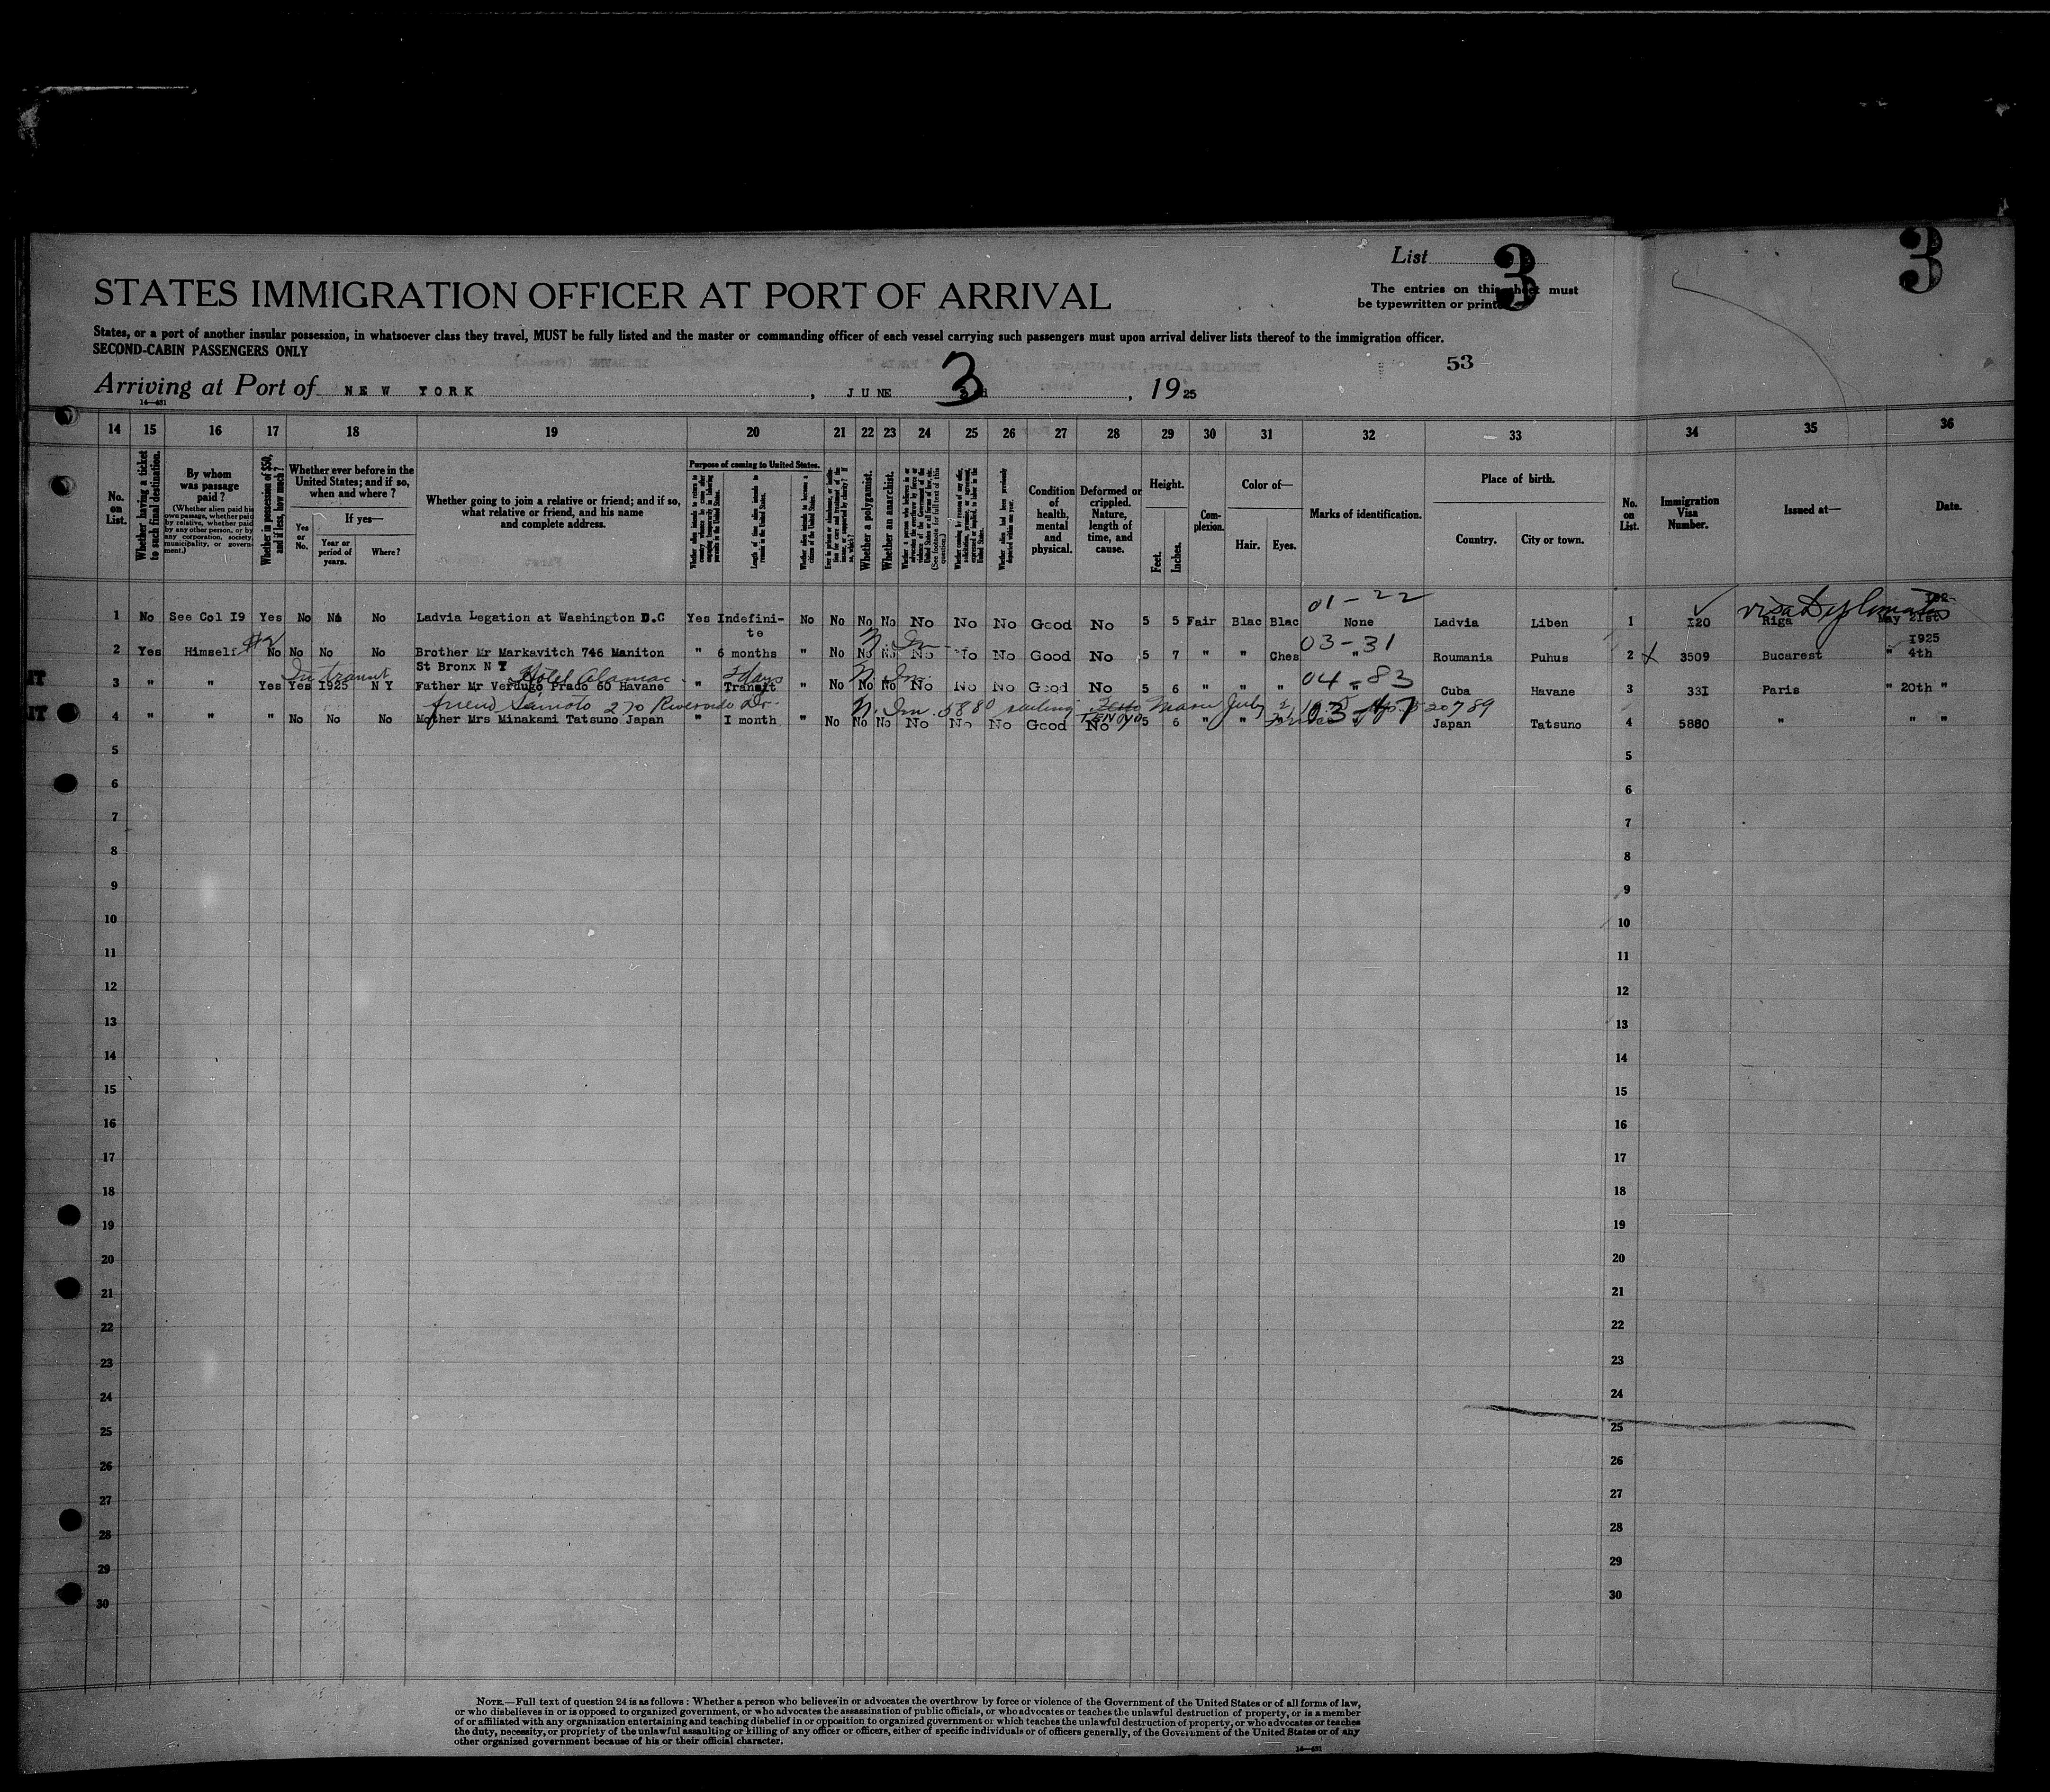 List 3
3
STATES IMMIGRATION OFFICER AT PORT OF ARRIVAL
The entries on this sheet must
be typewritten or printed.
States, or a port of another insular possession, in whatsoever class they travel, MUST be fully listed and the master or commanding officer of each vessel carrying such passengers must upon arrival deliver lists thereof to the immigration officer.
SECOND-CABIN PASSENGERS ONLY
53
Arriving at Port of NEW YORK, JUNE 3, 1925
14—481
14 15 16 17 18 19 20 21 22 23 24 25 26 27 28 29 30 31 32 33 34 35 36
No. on List.
Whether having a ticket to such final destination.
By whom was passage paid?
(Whether alien paid his own passage, whether paid by relative, whether paid by any other person, or by any corporation, society, municipality, or government.)
Whether in possession of $50, and if less, how much?
Whether ever before in the United States; and if so, when and where?
If yes—
Yes or No.
Year or period of years.
Where?
Whether going to join a relative or friend; and if so, what relative or friend, and his name and complete address.
Purpose of coming to United States.
Length of time alien intends to remain in the United States.
Whether alien intends to become a citizen of the United States.
Whether a polygamist.
Whether an anarchist.
(See footnote for full text of this question.)
Whether alien had been previously deported within one year.
Condition of health, mental and physical.
Deformed or crippled. Nature, length of time, and cause.
Height.
Feet.
Inches.
Complexion.
Color of—
Hair.
Eyes.
Marks of identification.
Place of birth.
Country.
City or town.
No. on List.
Immigration Visa Number.
Issued at—
Date.
01-22
visa Diplomatic
1 No See Col I9 Yes No No No Ladvia Legation at Washington D.C Yes Indefini- No No No No No No No Good No 5 5 Fair Blac Blac None Ladvia Liben 1 I20 Riga May 21st
te
N. Im 03-31
I925
2 Yes Himself No No No No Brother Mr Markavitch 746 Maniton " 6 months " No No No No No No Good No 5 7 " " Ches " Roumania Puhus 2 3509 Bucarest " 4th
St Bronx N Y
In transit Hotel Alamac 2 days N. Im 04-83
3 " " Yes Yes I925 N Y Father Mr Verdugo Prado 60 Havane " Transit " No No No No No No Good No 5 6 " " " " Cuba Havane 3 33I Paris " 20th "
friend Samoto 270 Riverside Dr. N. Im 5880 July 03-47 20789
4 " " " No No No Mother Mrs Minakami Tatsuno Japan " I month " No No No No No No Good No 5 6 " " Japan Tatsuno 4 5880 " " "
5 5
6 6
7 7
8 8
9 9
10 10
11 11
12 12
13 13
14 14
15 15
16 16
17 17
18 18
19 19
20 20
21 21
22 22
23 23
24 24
25 25
26 26
27 27
28 28
29 29
30 30
NOTE.—Full text of question 24 is as follows: Whether a person who believes in or advocates the overthrow by force or violence of the Government of the United States or of all forms of law,
or who disbelieves in or is opposed to organized government, or who advocates the assassination of public officials, or who advocates or teaches the unlawful destruction of property, or is a member
of or affiliated with any organization entertaining and teaching disbelief in or opposition to organized government or which teaches the unlawful destruction of property, or who advocates or teaches
the duty, necessity, or propriety of the unlawful assaulting or killing of any officer or officers, either of specific individuals or of officers generally, of the Government of the United States or of any
other organized government because of his or their official character.
14—481